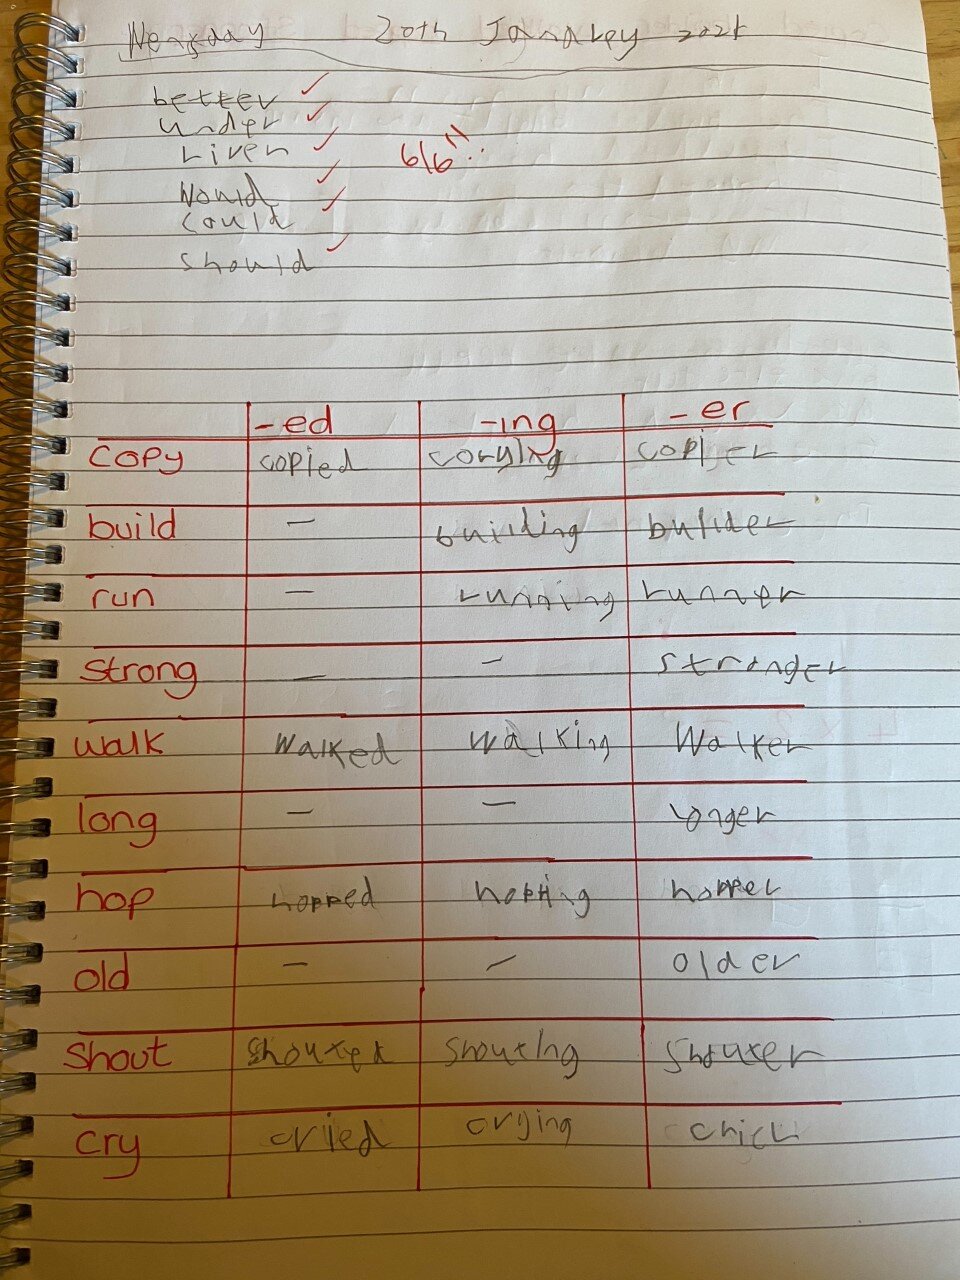 Wensday 20th Janarey 2021
better ✓
under ✓
river ✓
6/6 !!
Would ✓
Could ✓
Should ✓
-ed -ing -er
copy copied copying copier
build — building builder
run — running runner
strong — — stronger
walk Walked Walking Walker
long — — longer
hop hopped hopping hopper
old — — older
shout Shouted Shouting Shouter
cry cried crying